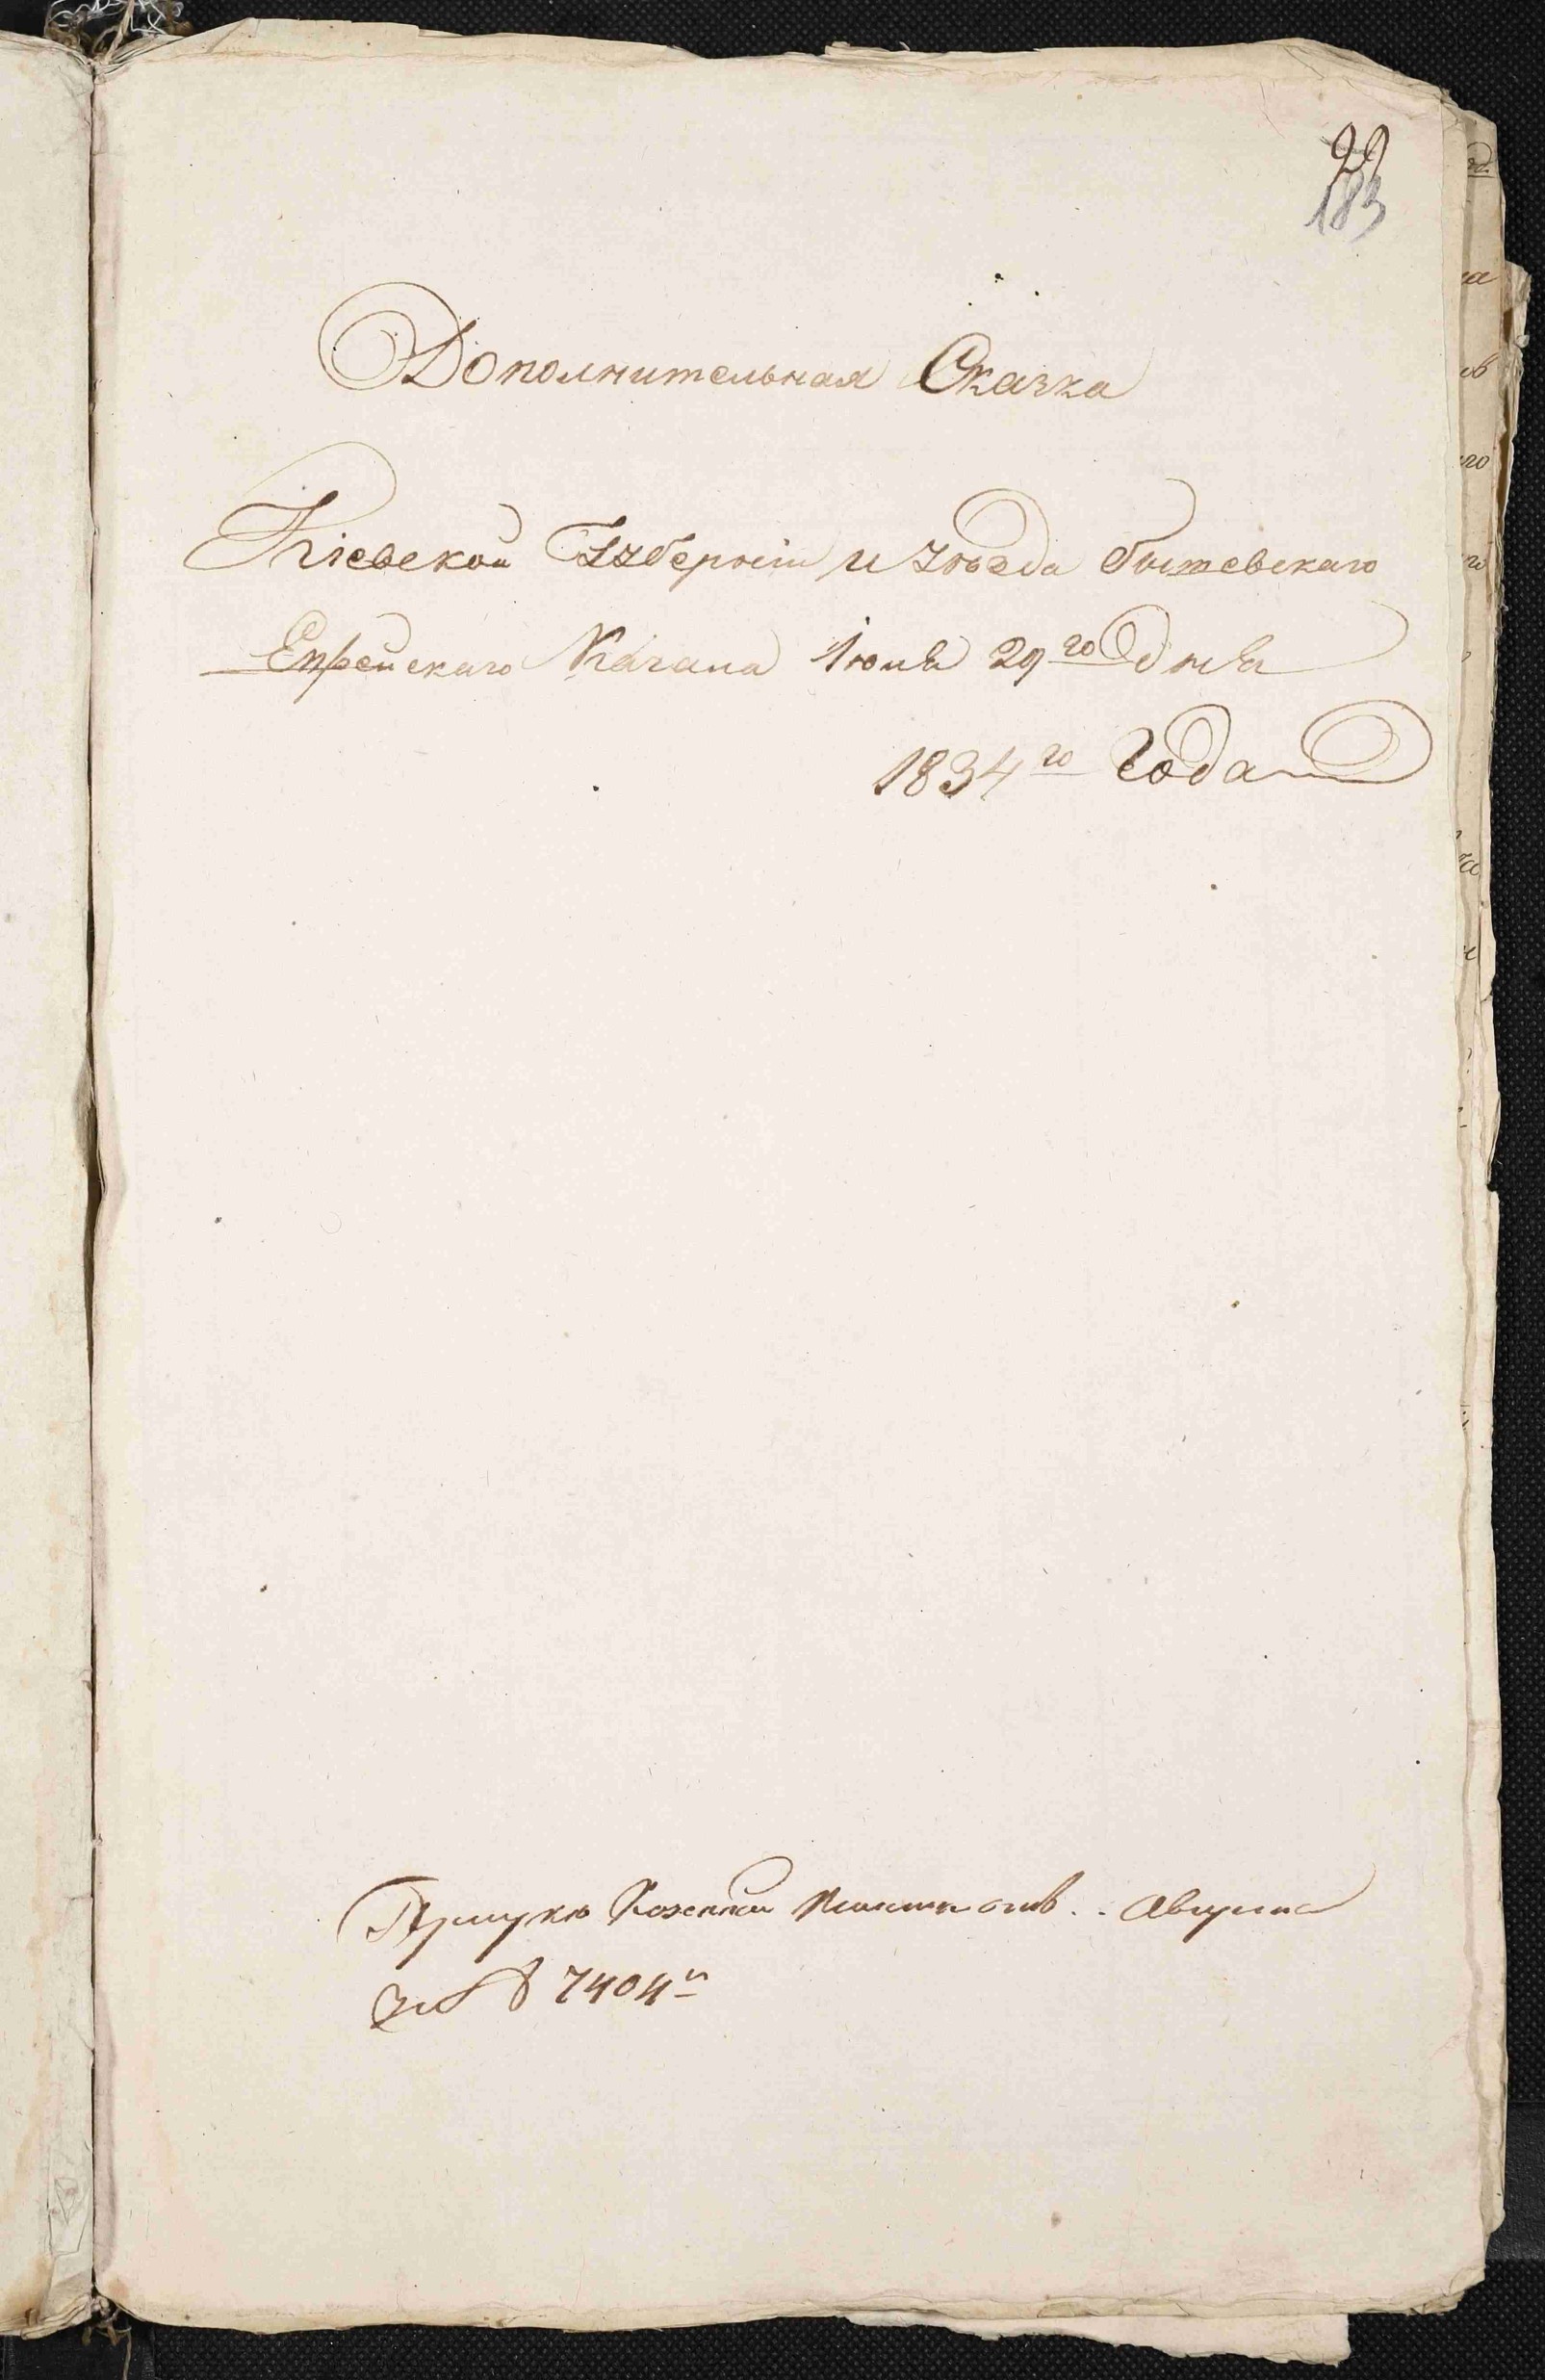 99
183
Дополнительная Сказка
Кіевской Губерніи и уѣзда бышевскаго
Еврейскаго Кагала Іюня 29го дня
1834го Года
августа
7404